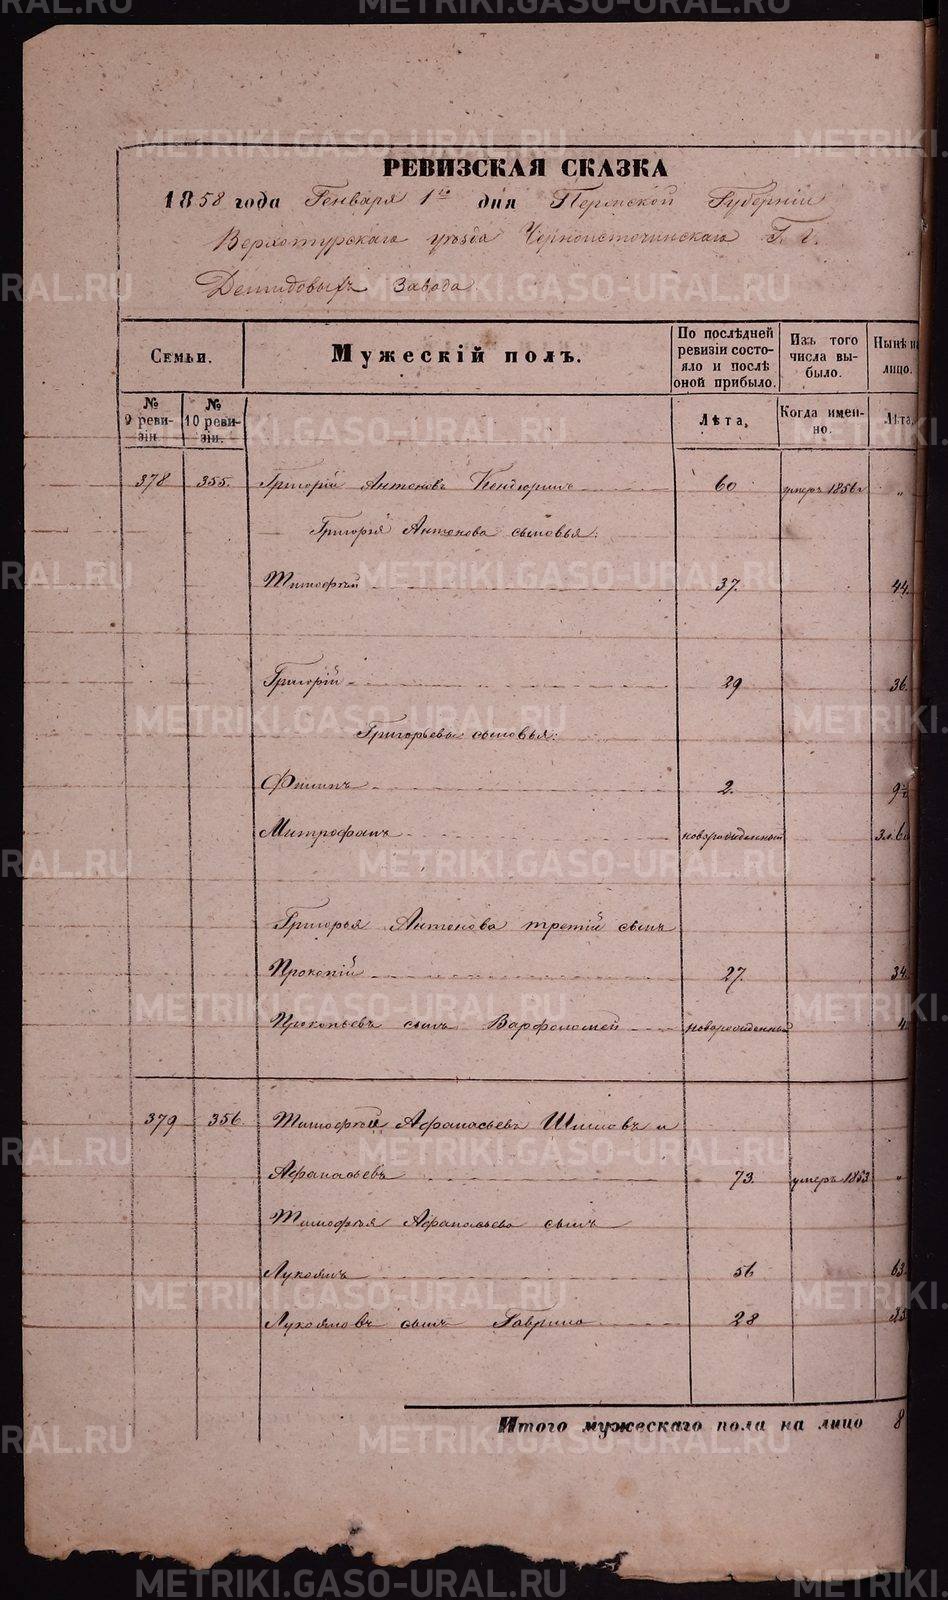 РЕВИЗСКАЯ СКАЗКА
1858 года Генваря 1го дня Пермской Губерніи
Верхотурскаго уѣзда Черноисточинскаго Г. Г.
Демидовыхъ Завода
Семьи.
Мужескій полъ.
По послѣдней ревизіи состояло и послѣ оной прибыло.
Изъ того числа выбыло.
Нынѣ на лицо.
№ 9 ревизіи.
№ 10 ревизіи.
Лѣта,
Когда именно.
Лѣта,
378 355. Григорій Антоновъ 60 умеръ 1856 г „
Григорія Антонова сыновья:
Тимофѣй 37. 44.
Григорій 29 36.
Григорьевы сыновья:
Филипъ 2. 9½
Митрофанъ новорожденный 3 л. 6
Григорья Антонова третій сынъ
Прокопій 27. 34.
Прокопьевъ сынъ Варфоломей новорожденный 4
379 356 Тимофѣй Афанасьевъ и
Афанасьевъ 73. умеръ 1853 „
Тимофѣя Афанасьева сынъ
Лукоянъ 56 63.
Лукояновъ сынъ Гаврило 28 35
Итого мужескаго пола на лицо 8
METRIKI.GASO-URAL.RU